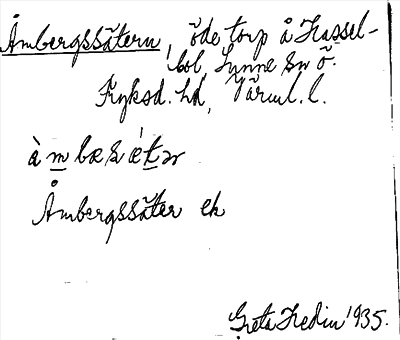 Åmbergssätern, öde torp å Hassel-
bol, Sunne sn ö.
Fryksd. hd, Värml. l.
à m bæs ǽ t ər
Åmbergssäter ek
Greta Hedin 1935.